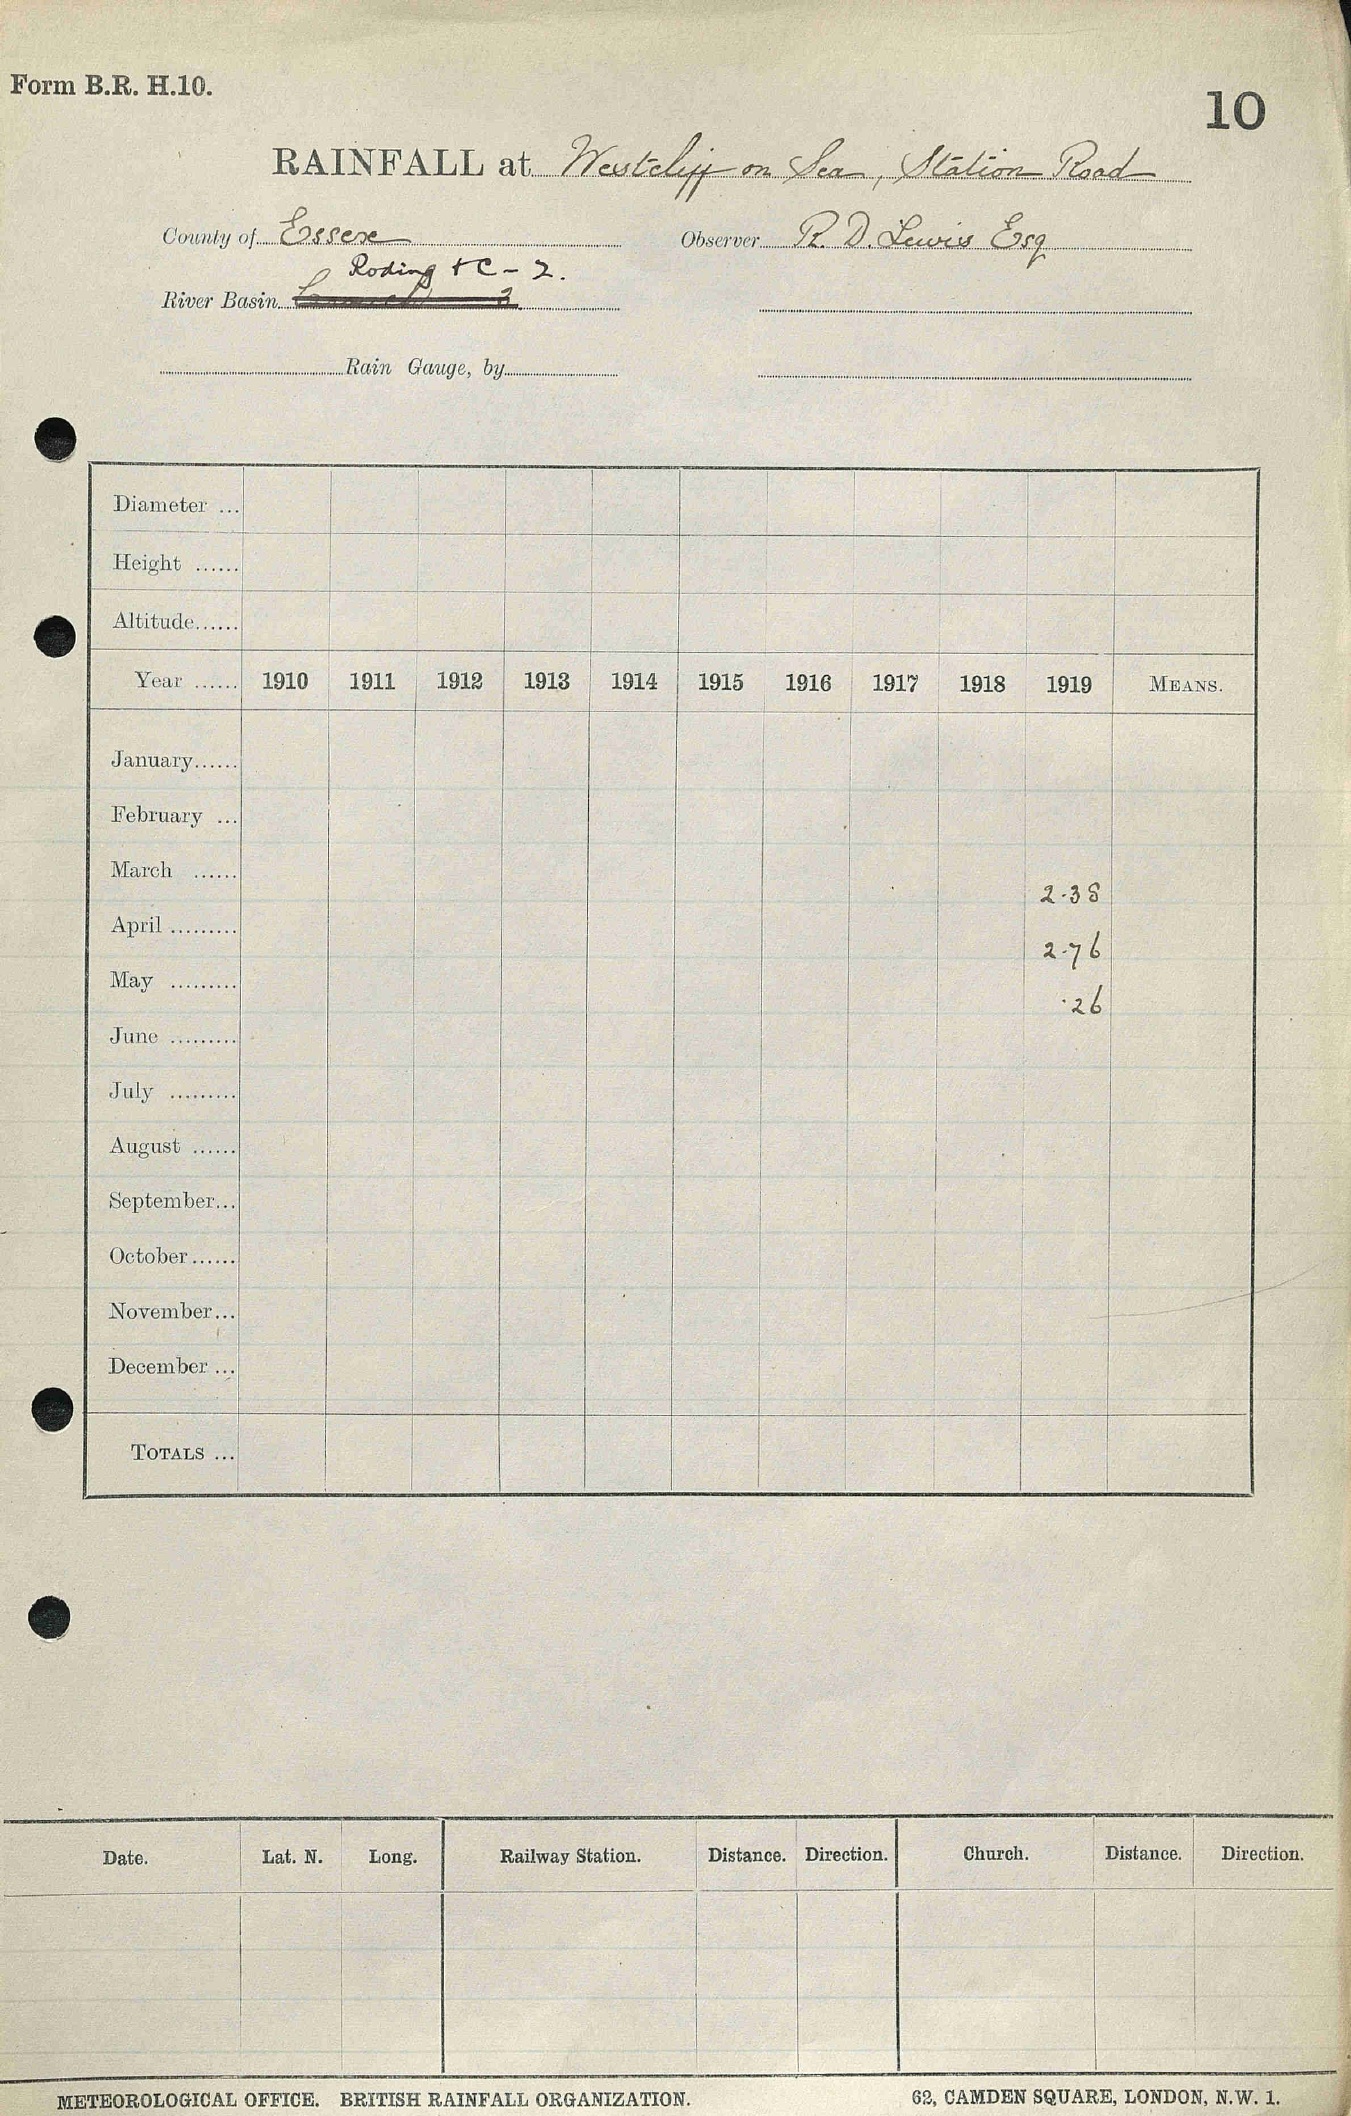 Form B.R. H.10.
10
RAINFALL at Westcliff on Sea, Station Road
County of Essex Observer R. D. Lewis Esq
Roding & C – 2.
River Basin 2
Rain Gauge, by
Diameter ...
Height ......
Altitude......
Year ...... 1910 1911 1912 1913 1914 1915 1916 1917 1918 1919 MEANS.
January......
February ...
March ...... 2.38
April ......... 2.76
May ......... .26
June .........
July .........
August ......
September...
October......
November...
December ...
TOTALS ...
Date. Lat. N. Long. Railway Station. Distance. Direction. Church. Distance. Direction.
METEOROLOGICAL OFFICE. BRITISH RAINFALL ORGANIZATION. 62, CAMDEN SQUARE, LONDON, N.W. 1.